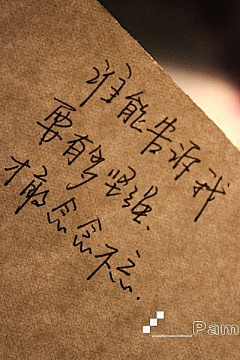 谁能告诉我
要有多坚强
才敢念念不忘.
Pam